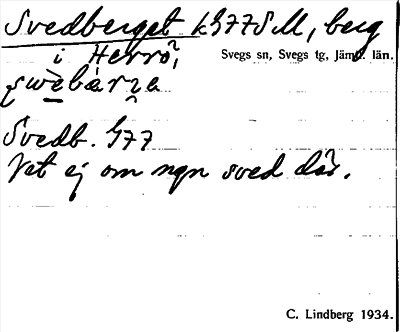 Svedberget k 977 S M, berg
i Herrö,
Svegs sn, Svegs tg, Jämtl. län.
Svedb. 977
Vet ej om ngn sved där.
C. Lindberg 1934.